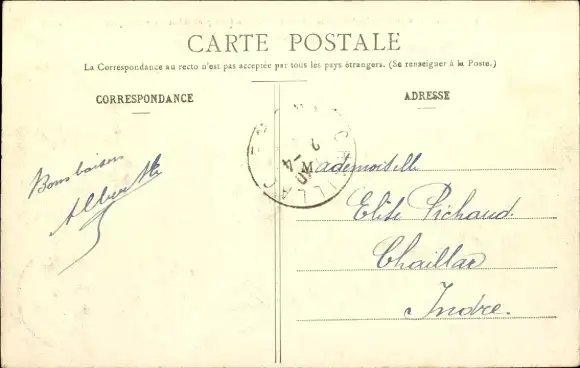 CARTE POSTALE
La Correspondance au recto n'est pas acceptée par tous les pays étrangers. (Se renseigner à la Poste.)
CORRESPONDANCE
ADRESSE
Bons baisers
Mademoiselle
Elise Pichaud.
Chaillac
Indre.
CHAILLAC